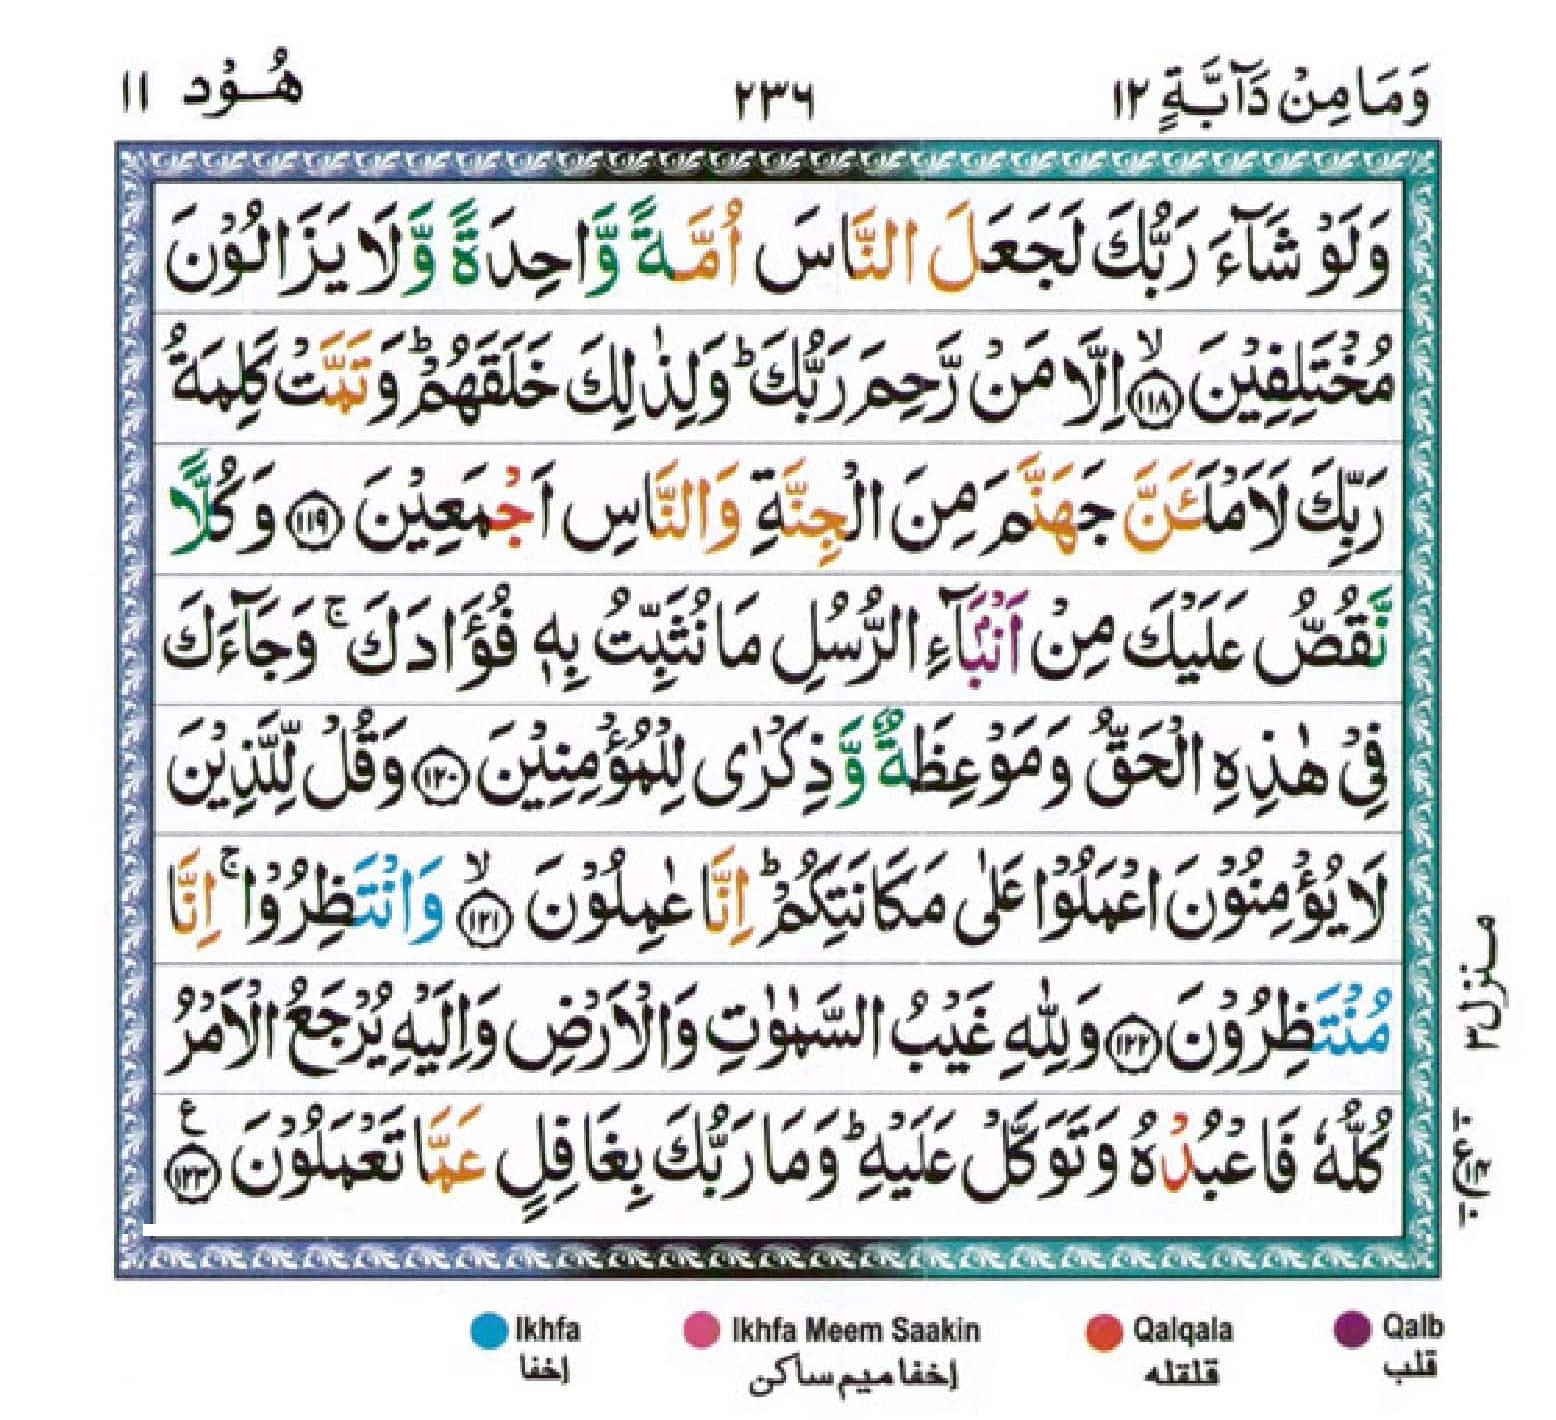 وَمَا مِنْ دَآبَّةٍ ١٢ ٢٣٦ هُوْد ١١
وَلَوْ شَآءَ رَبُّكَ لَجَعَلَ النَّاسَ اُمَّةً وَّاحِدَةً وَّلَا يَزَالُوْنَ
مُخْتَلِفِيْنَ ۙ﴿١١٨﴾ اِلَّا مَنْ رَّحِمَ رَبُّكَ ؕ وَلِذٰلِكَ خَلَقَهُمْ ؕ وَتَمَّتْ كَلِمَةُ
رَبِّكَ لَاَمْلَـَٔنَّ جَهَنَّمَ مِنَ الْجِنَّةِ وَالنَّاسِ اَجْمَعِيْنَ ﴿١١٩﴾ وَكُلًّا
نَّقُصُّ عَلَيْكَ مِنْ اَنْۢبَآءِ الرُّسُلِ مَا نُثَبِّتُ بِهٖ فُؤَادَكَ ۚ وَجَآءَكَ
فِيْ هٰذِهِ الْحَقُّ وَمَوْعِظَةٌ وَّذِكْرٰى لِلْمُؤْمِنِيْنَ ﴿١٢٠﴾ وَقُلْ لِّلَّذِيْنَ
لَا يُؤْمِنُوْنَ اعْمَلُوْا عَلٰى مَكَانَتِكُمْ ؕ اِنَّا عٰمِلُوْنَ ۙ﴿١٢١﴾ وَانْتَظِرُوْا ۚ اِنَّا
مُنْتَظِرُوْنَ ﴿١٢٢﴾ وَلِلّٰهِ غَيْبُ السَّمٰوٰتِ وَالْاَرْضِ وَاِلَيْهِ يُرْجَعُ الْاَمْرُ
كُلُّهٗ فَاعْبُدْهُ وَتَوَكَّلْ عَلَيْهِ ؕ وَمَا رَبُّكَ بِغَافِلٍ عَمَّا تَعْمَلُوْنَ ﴿١٢٣﴾ ع
منزل ٣
Ikhfa Ikhfa Meem Saakin Qalqala Qalb
إخفا إخفا ميم ساكن قلقله قلب